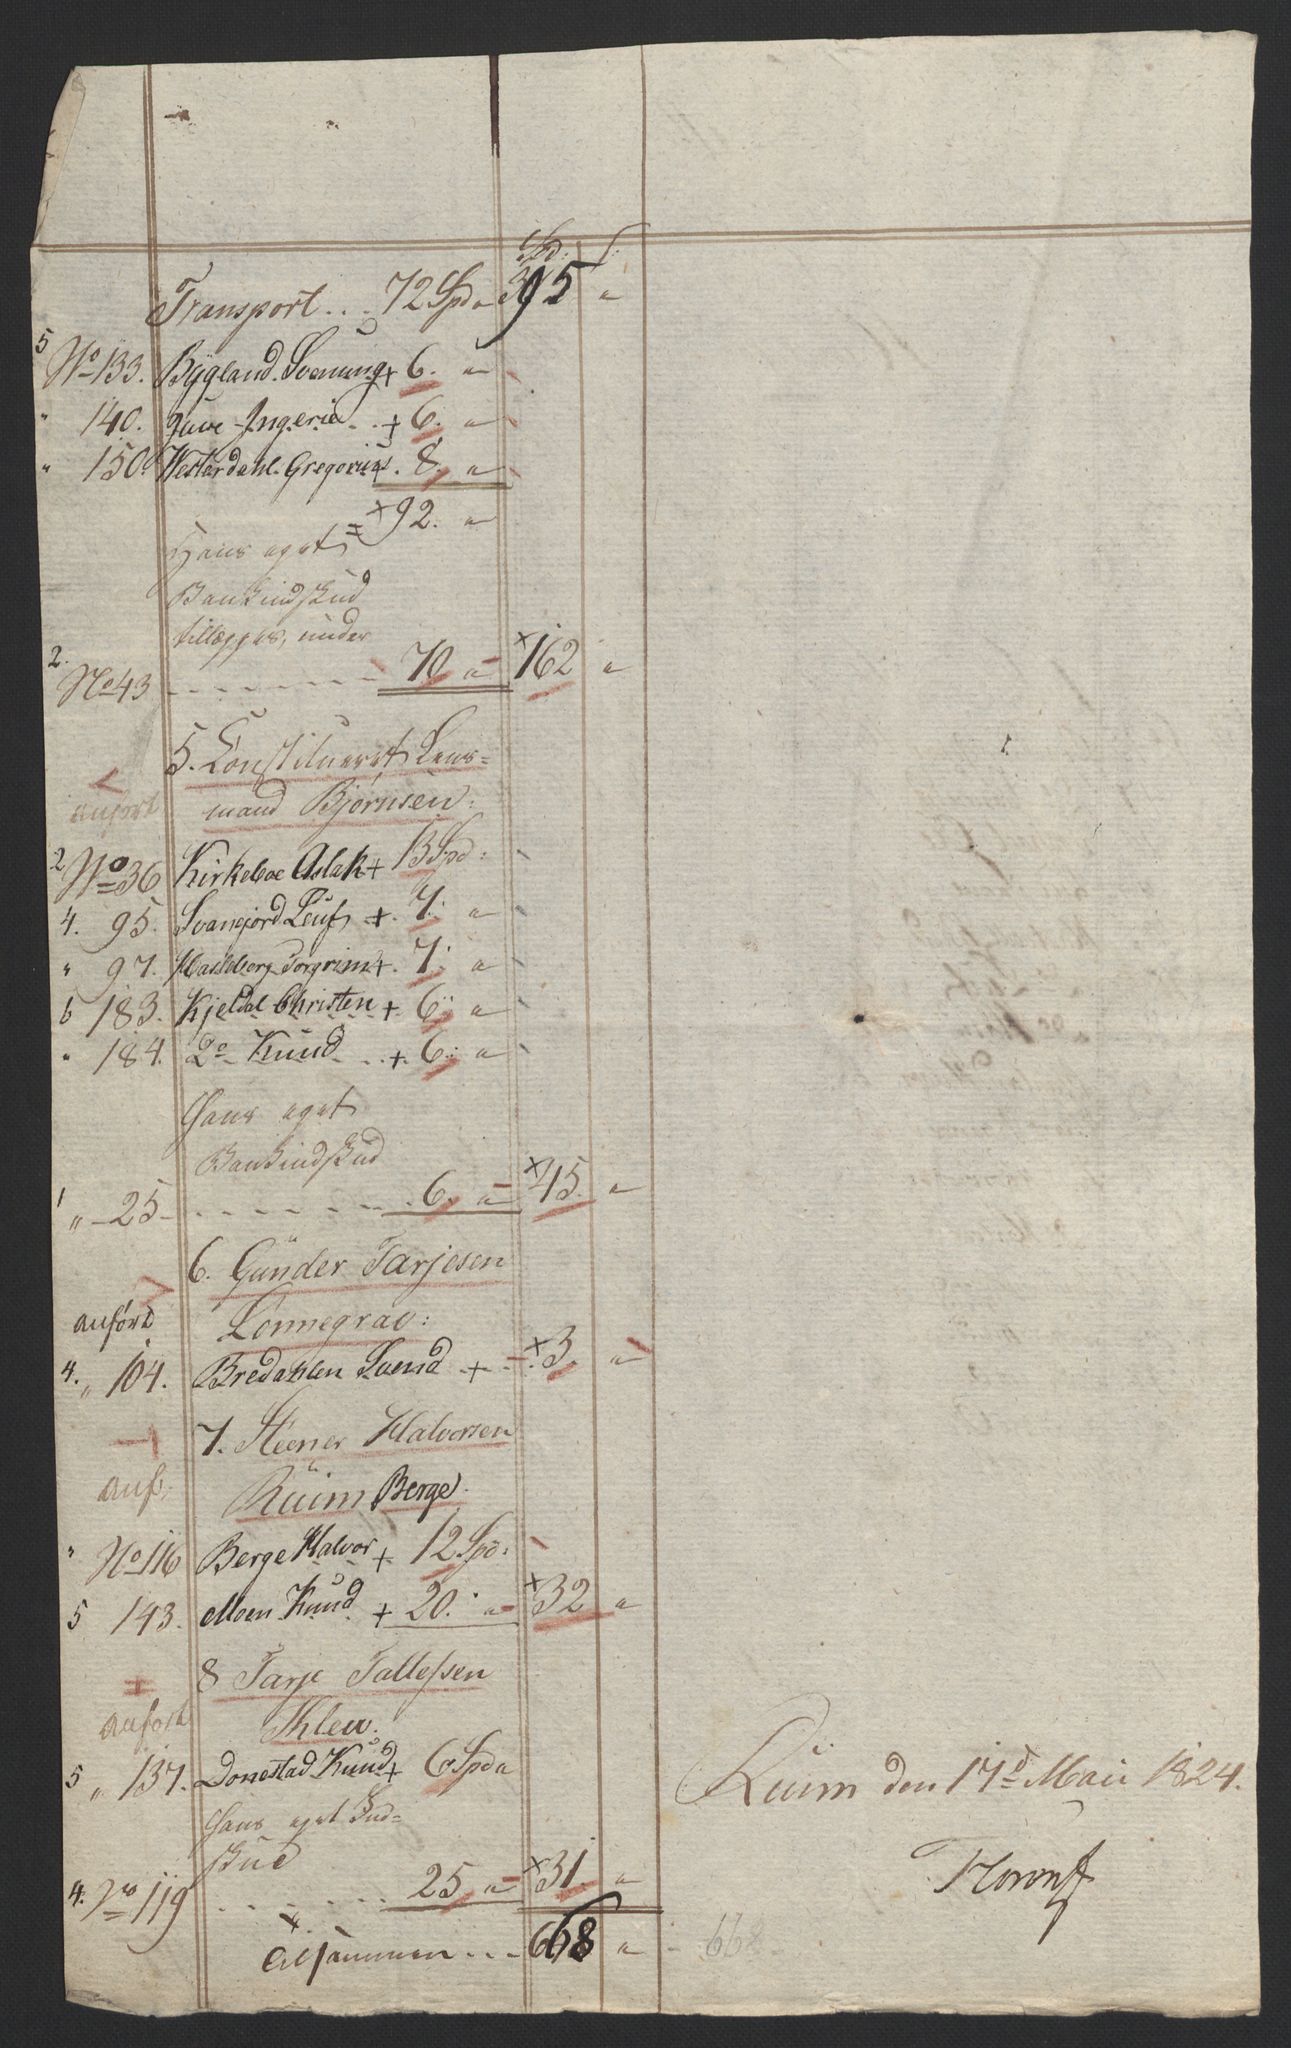 Spd: s:
Transport . . 72 Spd " 395 "
5 No 133. Bygland Svenung + 6. "
" 140. Juve Ingerid . . + 6. "
" 150. Westerdahl Gregorius + 8. "
+ 92. "
Hans eget
Bankindskud
tillægges, under
2. No 43 - - - - - - 70 " + 162 "
5. Constitueret Lens=
anført mand Bjørnsen:
2 No 36 Kirkeboe Aslak + 13 Spd:
4. 95. Svanejord Leuf + 7. "
" 97. Torgrim + 7. "
6 183. Kjeldal Christen + 6. "
" 184. Do Knud . . + 6. "
Hans eget
Bankindskud
1 " 25 - - - - - - 6. " + 45. "
6. Gunder Tarjesen
anførd Lønnegrav:
4. " 104. Bredahlen Svend + . + 3. "
7. Steener Halvorsen
anf: Ruim Berge.
" No 116 Berge Halvor + 12 Spd:
5 143. Moen Knud + 20. " + 32 "
8 Tarje Tallefsen
anført Klev.
5 " 137. Donestad Knud + 6 Spd "
Hans eget Ind=
skud
4. No 119 . . . . . 25 " + 31. "
Tilsammen . . . 668 " - 668
Ruim den 17d Maii 1824.